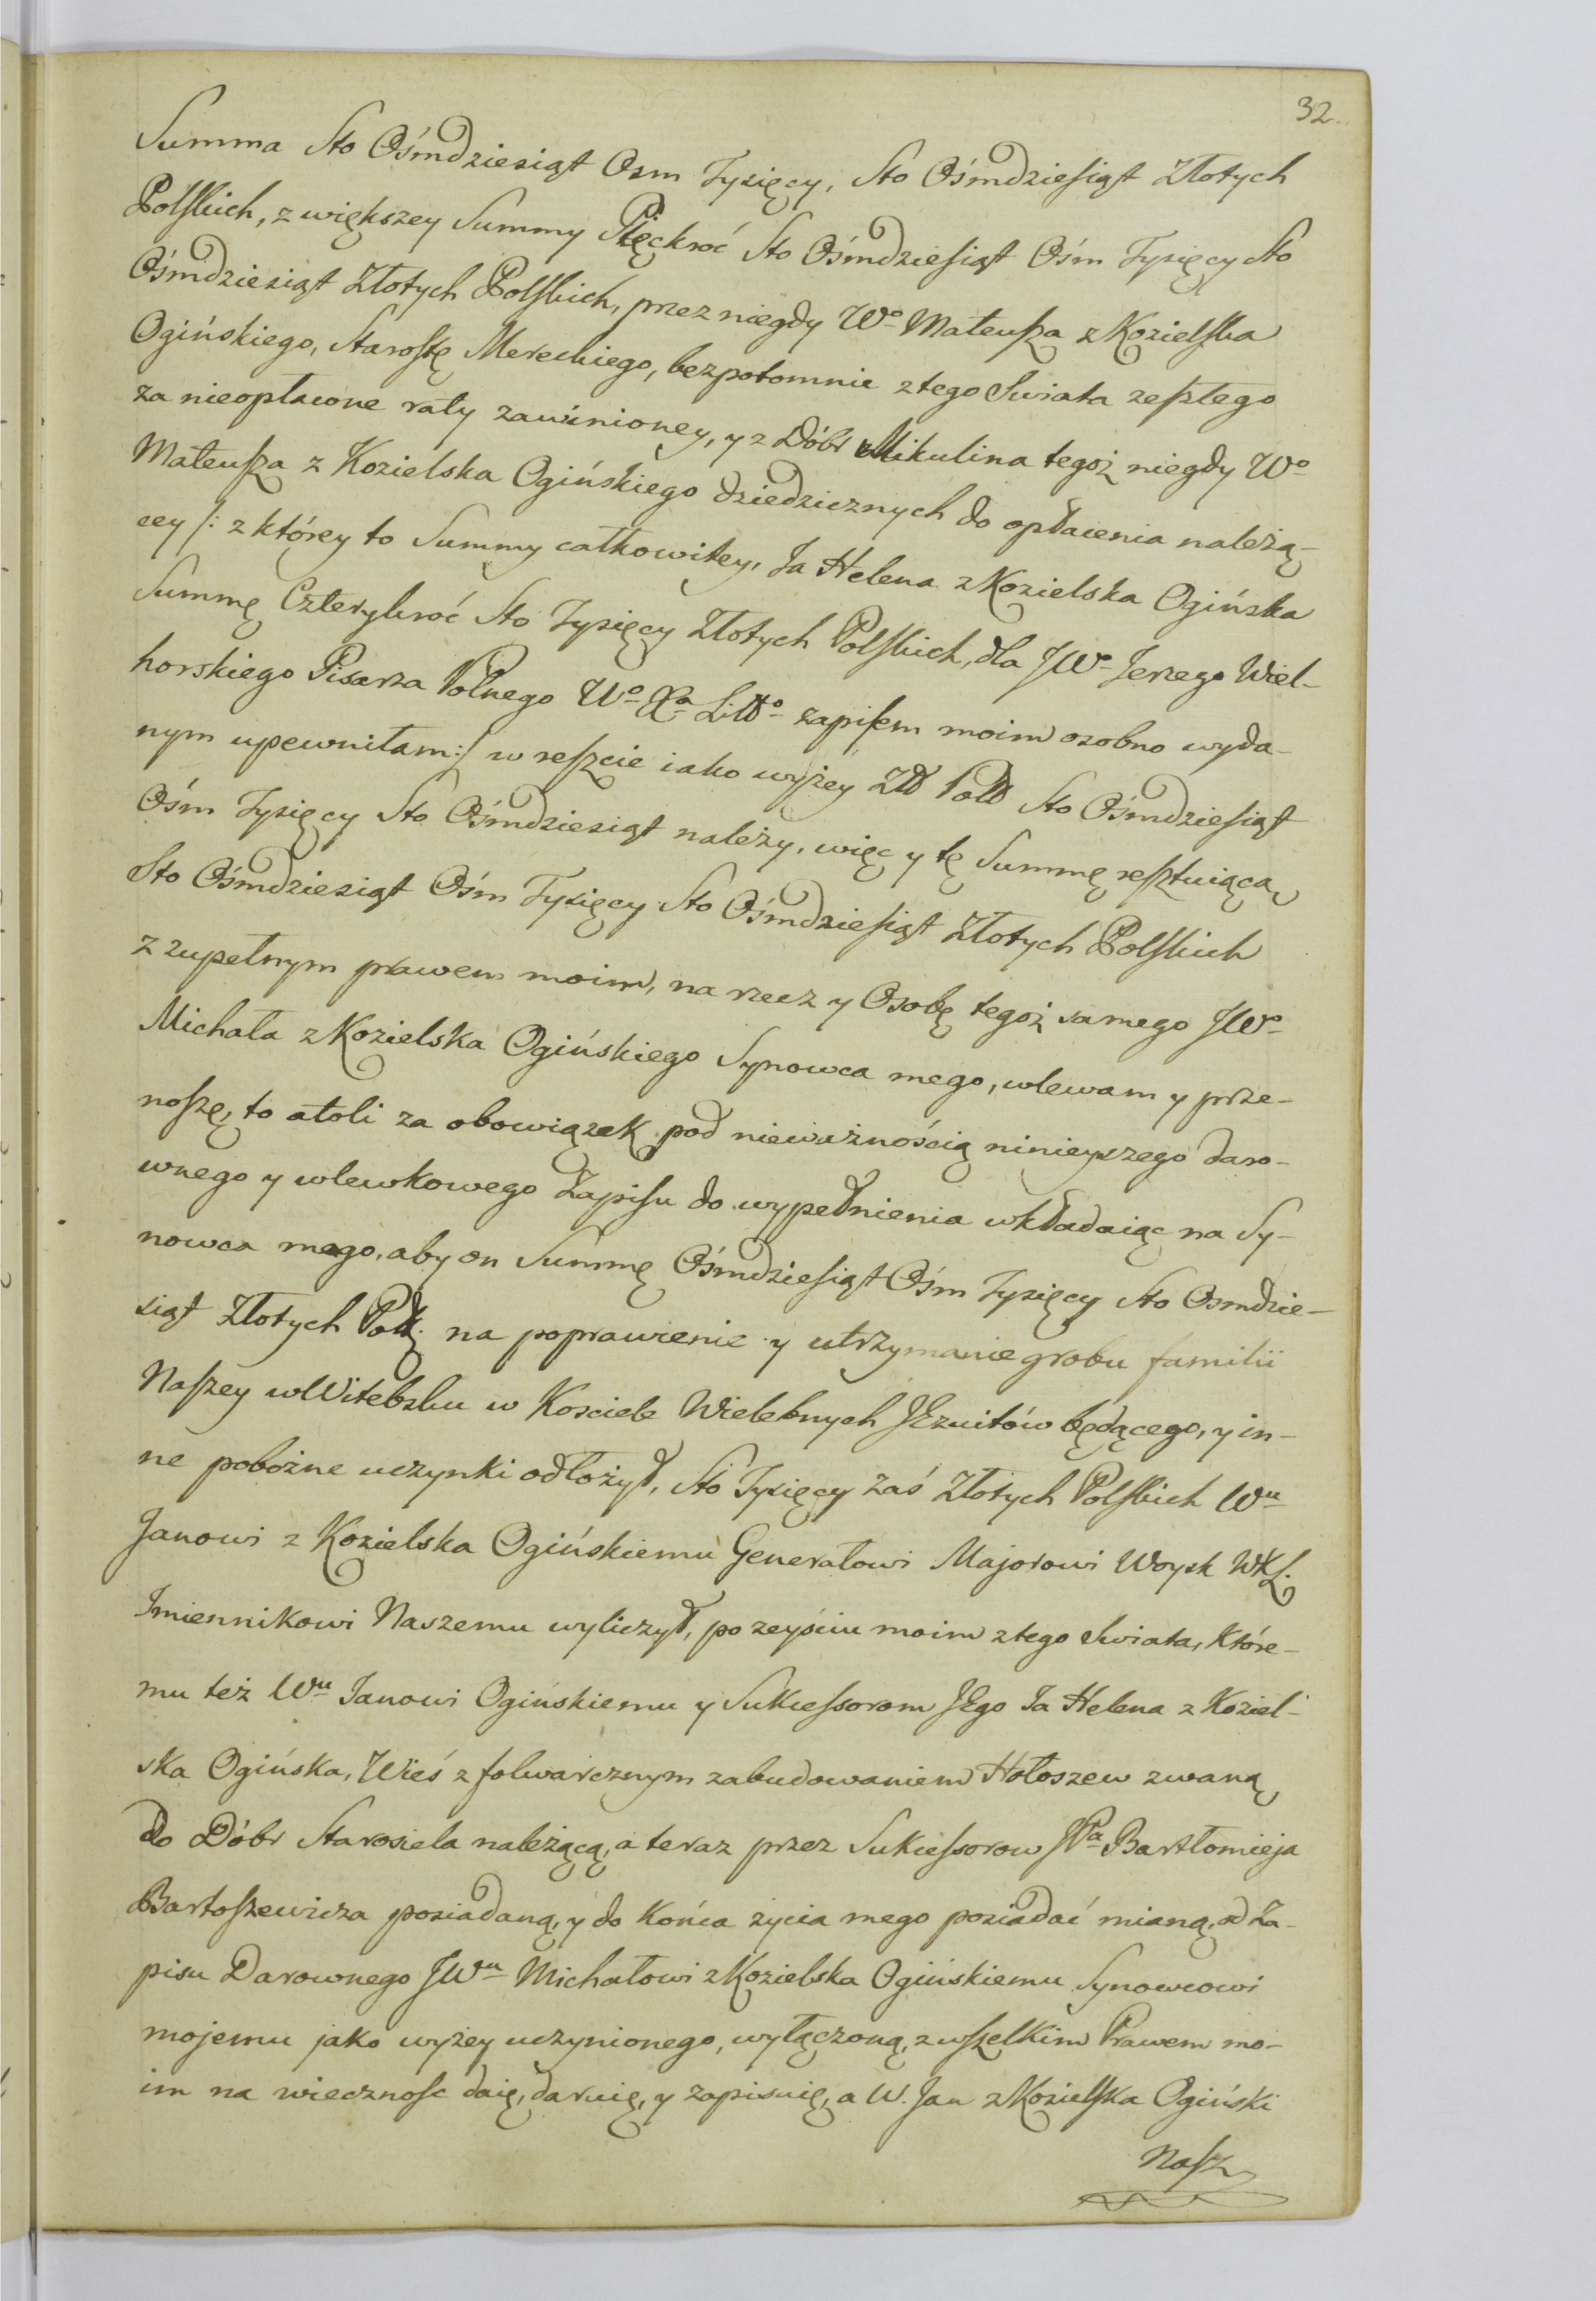 32.
Summa Sto Ośmdziesiąt Osm Tysięcy, Sto Ośmdziesiąt Złotych
Polskich, z większey Summy Pięckroć Sto Ośmdziesiąt Ośm Tysięcy Sto
Ośmdziesiąt Złotych Polskich, przez niegdy Wo Mateusza z Kozielska
Ogińskiego, Starostę Mereckiego, bezpotomnie z tego Swiata zeszłego
za nieopłacone raty zawinioney, y z Dóbr Mikulina tegoż niegdy Wo
Mateusza z Kozielska Ogińskiego dziedzicznych do opłacenia należą-
cey /: z którey to Summy całkowitey, Ja Helena z Kozielska Ogińska
Summę Czterykroć Sto Tysięcy Złotych Polskich, dla JWo Jerzego Wiel-
horskiego Pisarza Polnego Wo Xa Litto zapisem moim osobno wyda-
nym upewniłam :/ w reszcie iako wyżey Złł Poll Sto Ośmdziesiąt
Ośm Tysięcy Sto Ośmdziesiąt należy, więc y tę Summę resztuiącą
Sto Ośmdziesiąt Ośm Tysięcy Sto Ośmdziesiąt Złotych Polskich
z zupełnym prawem moim, na rzecz y Osobę tegoż samego JWo
Michała z Kozielska Ogińskiego Synowca mego, wlewam y prze-
noszę, to atoli za obowiązek pod nieważnością ninieyszego daro-
wnego y wlewkowego Zapisu do wypełnienia wkładaiąc na Sy-
nowca mego, aby on Summę Ośmdziesiąt Ośm Tysięcy Sto Osmdzie-
siąt Złotych Polł: na poprawienie y utrzymanie grobu familii
Naszey w Witebsku w Kosciele Wielebnych JEzuitów będącego, y in-
ne pobożne uczynki odłożył, Sto Tysięcy zaś Złotych Polskich Wu
Janowi z Kozielska Ogińskiemu Generałowi Majorowi Woysk WXL:
Imiennikowi Naszemu wyliczył, po zeyściu moim z tego Swiata, Które-
mu też Wu Janowi Ogińskiemu y Sukcessorom JEgo Ja Helena z Koziel-
ska Ogińska, Wieś z folwarcznym zabudowaniem Hołoszew zwaną
do Dóbr Starosiela należącą, a teraz przez Sukcessorow JPa Bartłomieja
Bartoszewicza posiadaną, y do Końca życia mego posiadać mianą, od Za-
pisu Darownego JWu Michałowi z Kozielska Ogińskiemu Synowcowi
mojemu jako wyżey uczynionego, wyłączoną, z wszelkim Prawem mo-
im na wiecznosc daię, daruię, y zapisuię, a W. Jan z Kozielska Ogiński
Nasz